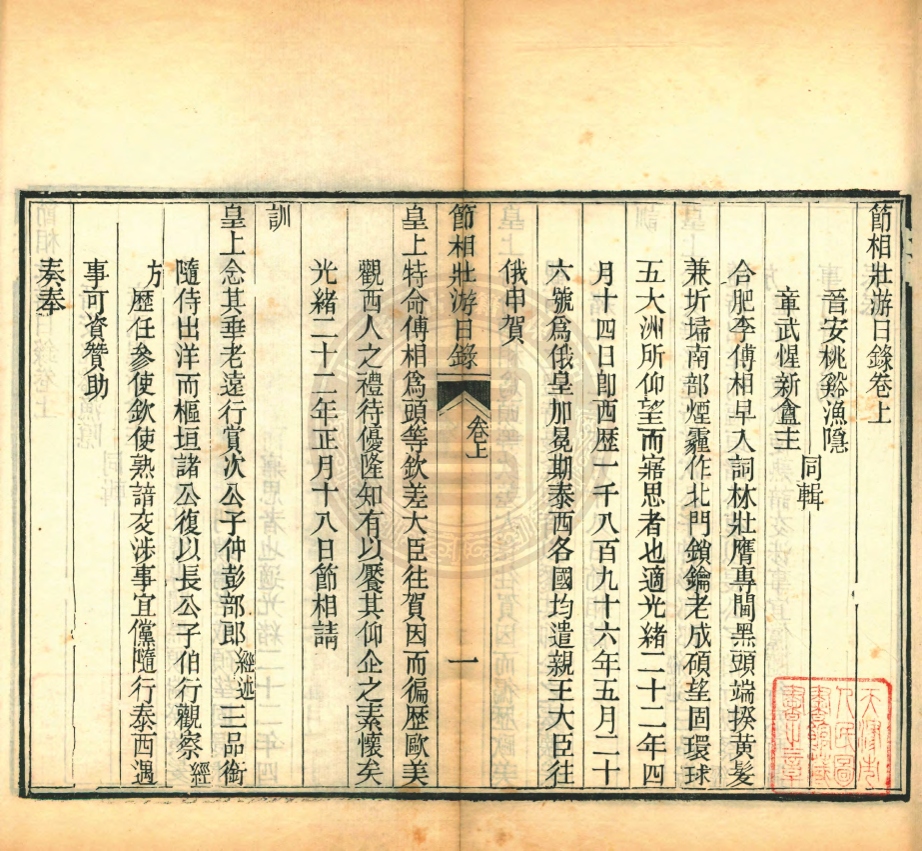 節相壯游日錄卷上
晉安桃谿漁隱
同輯
章武惺新盦主
合肥李傅相早入詞林壯膺專閫黑頭端揆黃髮
兼圻埽南部煙霾作北門鎖鑰老成碩望固環球
五大洲所仰望而寤思者也適光緒二十二年四
月十四日卽西歷一千八百九十六年五月二十
六號爲俄皇加冕期泰西各國均遣親王大臣往
俄申賀
節相壯游日錄 卷上 一
皇上特命傅相爲頭等欽差大臣往賀因而徧歷歐美
觀西人之禮待優隆知有以饜其仰企之素懷矣
光緒二十二年正月十八日節相請
訓
皇上念其垂老遠行賞次公子仲彭部郎經述三品銜
隨侍出洋而樞垣諸公復以長公子伯行觀察經
方歷任參使欽使熟諳交涉事宜儻隨行泰西遇
事可資贊助
奏奉
天津市
人民圖
書館藏
書之章